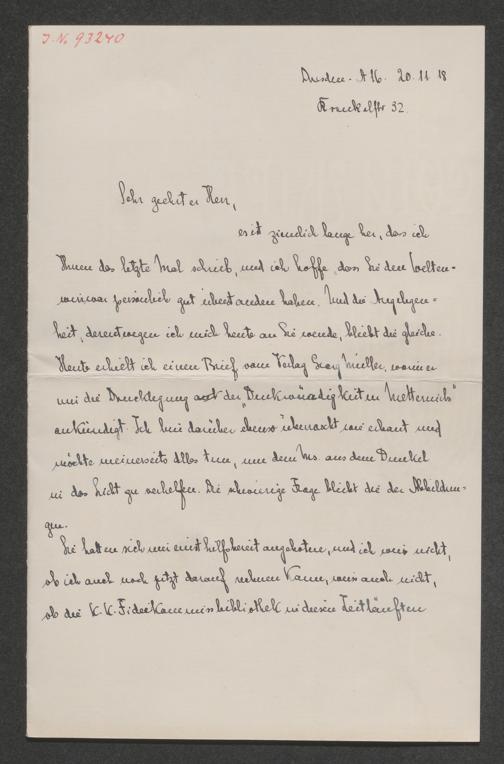 J. N. 93240
Dresden - A 16. 20.11.18
Franckelstr 32.
Sehr geehrter Herr,
es ist ziemlich lange her, dass ich
Ihnen das letzte Mal schrieb, und ich hoffe, dass Sie den Welten-
wirrwar persönlich gut überstanden haben. Und die Angelegen-
heit, derentwegen ich mich heute an Sie wende, bleibt die gleiche.
Heute erhielt ich einen Brief vom Verlag Georg Müller, worin er
mir die Drucklegung der "Denkwürdigkeiten Metternichs"
ankündigt. Ich bin darüber ebenso überrascht wie erbaut und
möchte meinerseits Alles tun, um dem Ms. aus dem Dunkel
in das Licht zu verhelfen. Die schwierige Frage bleibt die der Abbildun-
gen.
Sie hatten sich mir einst hilfsbereit angeboten, und ich weiss nicht,
ob ich auch noch jetzt darauf rechnen kann, weiss auch nicht,
ob die K.K. Fideikommissbibliothek in diesen Zeitläuften